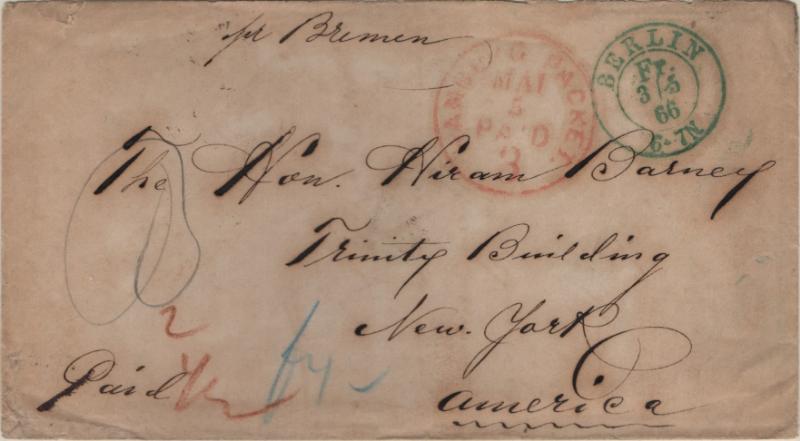 pr Bremen
HAMBURG PACKET
MAI
5
PAID
3
BERLIN
Fr.
3 5
66
6-7N
The Hon. Hiram Barney
Trinity Building
New. York
America
Paid
2